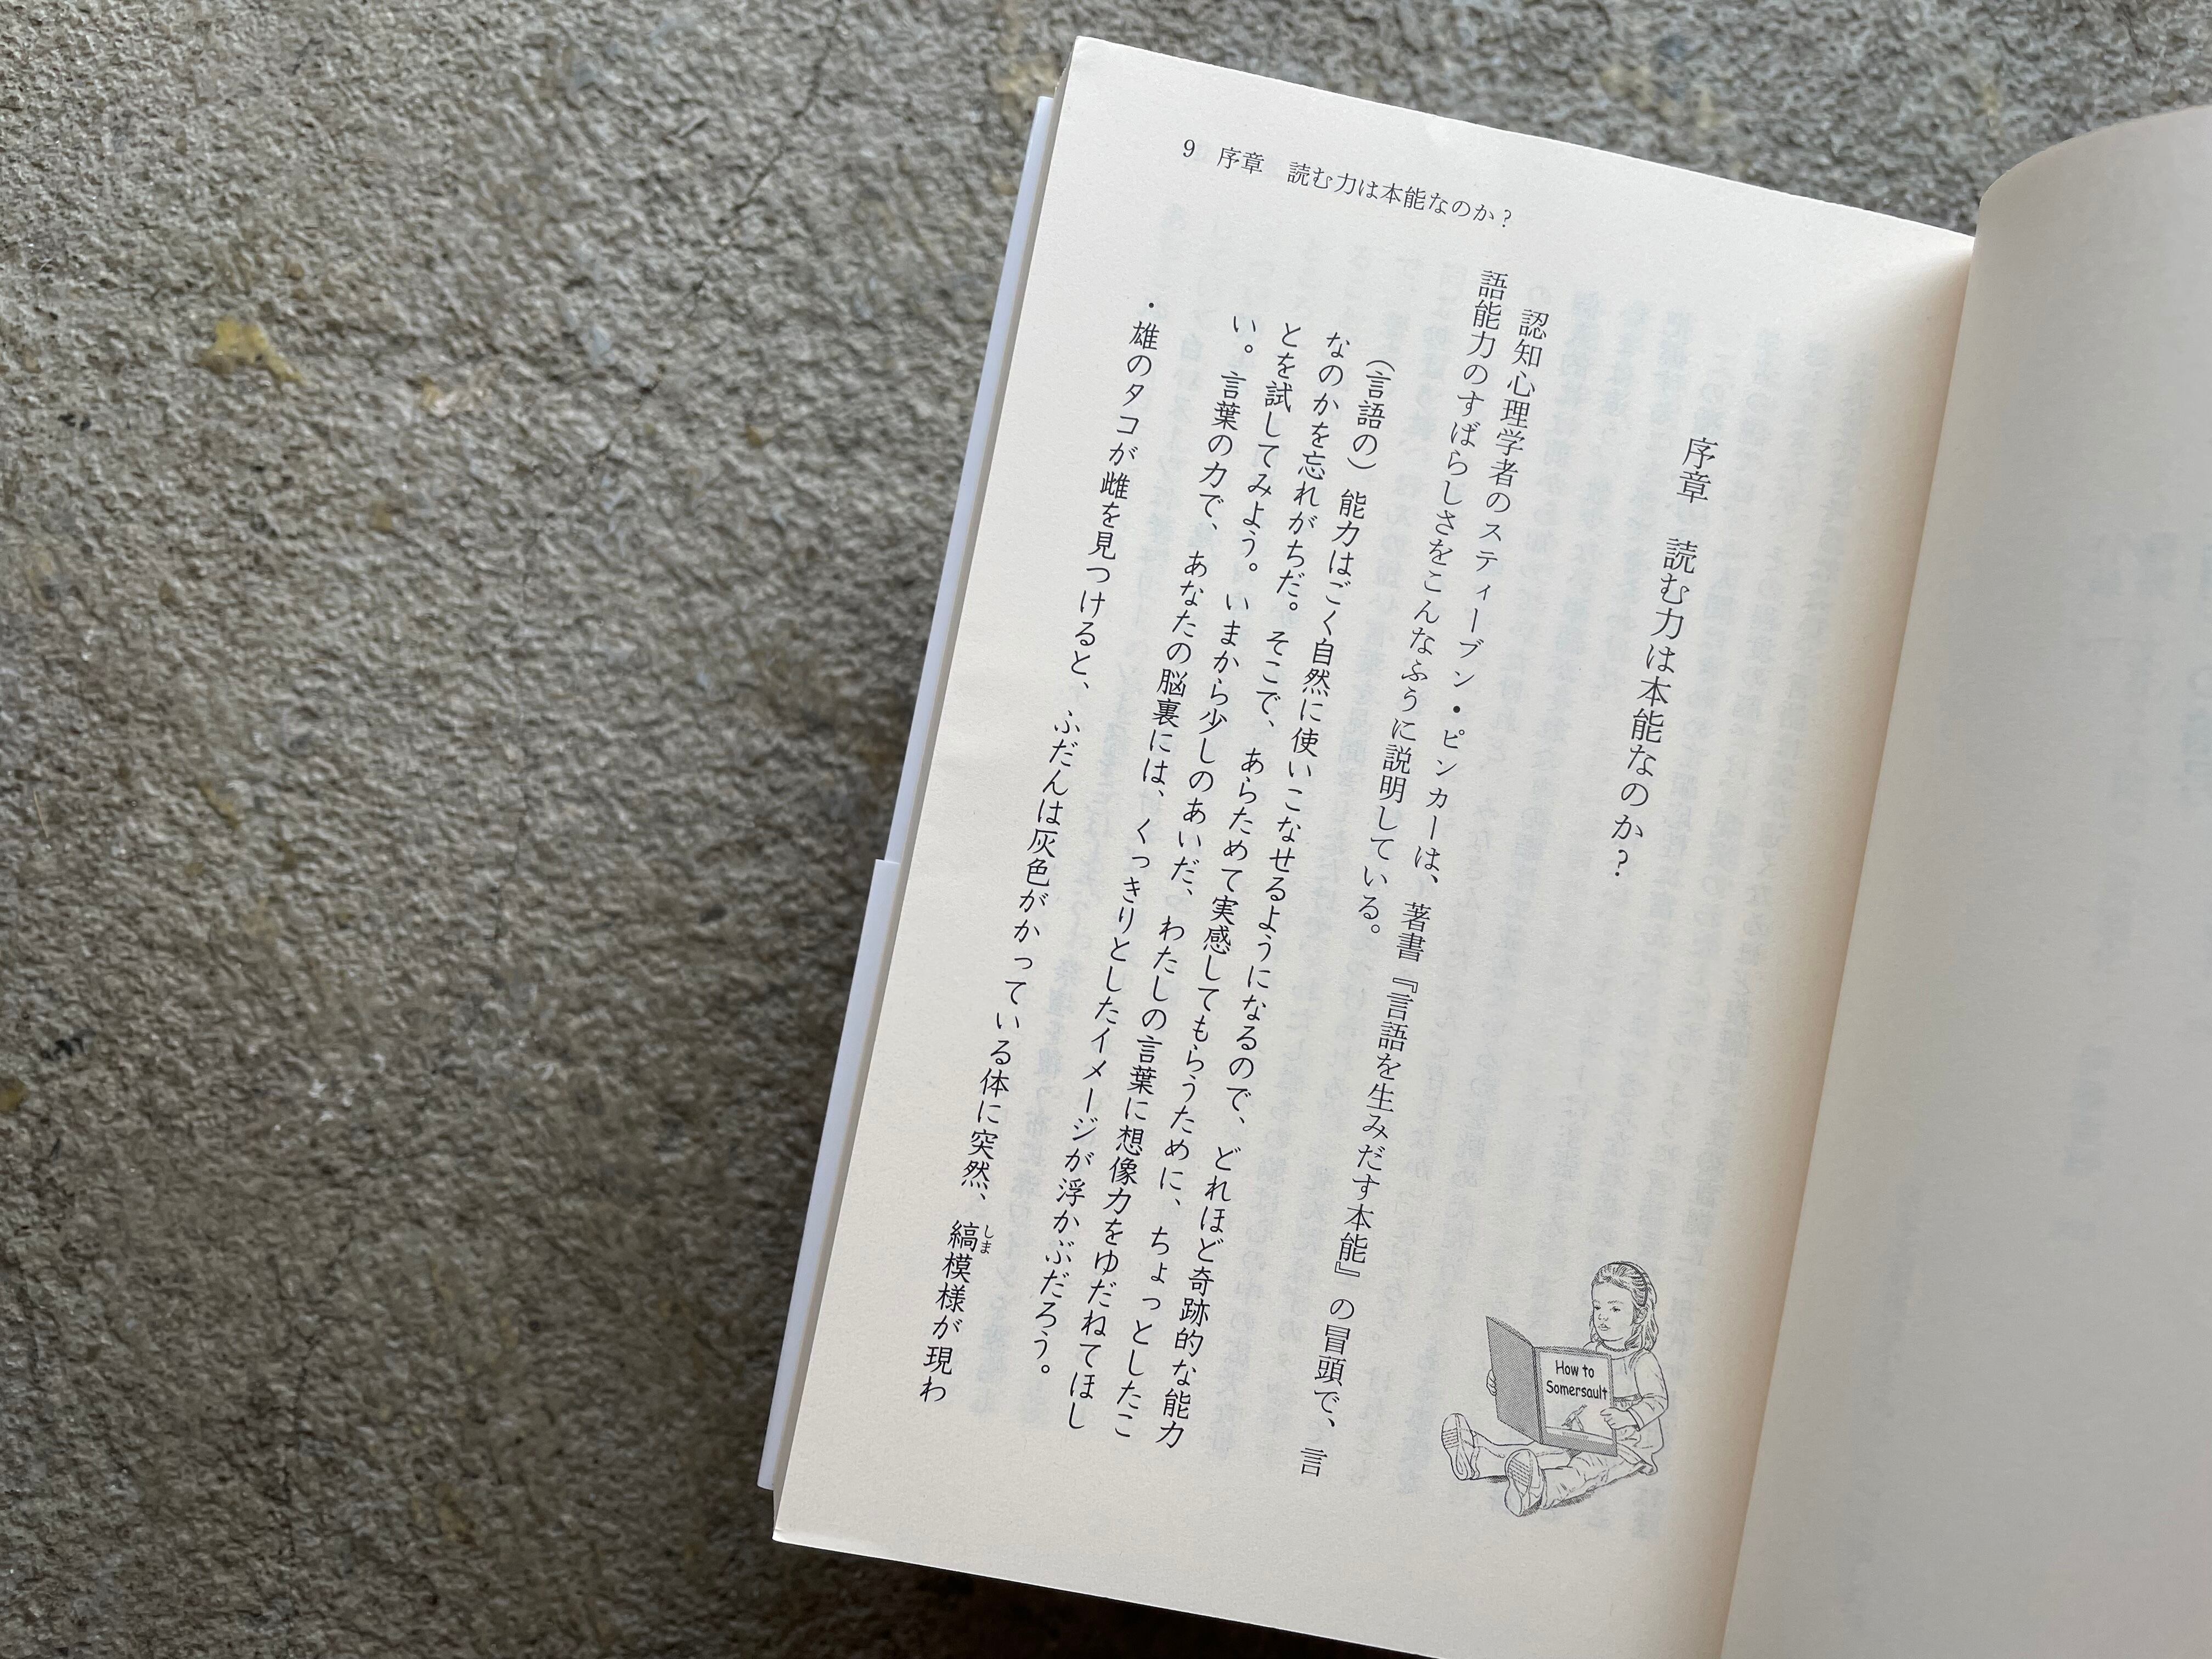 9　序章　読む力は本能なのか？
序章　読む力は本能なのか？
認知心理学者のスティーブン・ピンカーは、著書『言語を生みだす本能』の冒頭で、言
語能力のすばらしさをこんなふうに説明している。
（言語の）能力はごく自然に使いこなせるようになるので、どれほど奇跡的な能力
なのかを忘れがちだ。そこで、あらためて実感してもらうために、ちょっとしたこ
とを試してみよう。いまから少しのあいだ、わたしの言葉に想像力をゆだねてほし
い。言葉の力で、あなたの脳裏には、くっきりとしたイメージが浮かぶだろう。
・雄のタコが雌を見つけると、ふだんは灰色がかっている体に突然、縞模様が現わ
しま
How to
Somersault